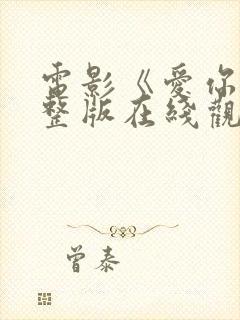 電影《愛你
整版在綫觀
曾泰